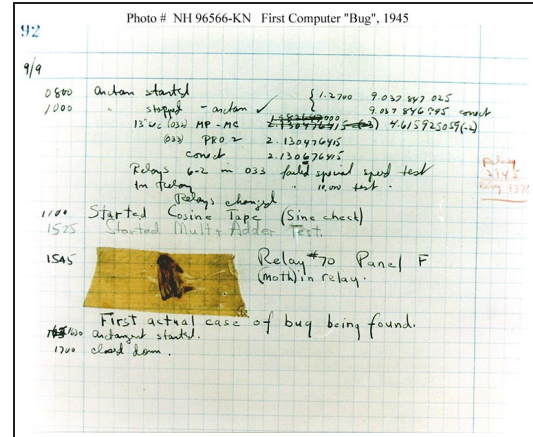 Photo # NH 96566-KN First Computer "Bug", 1945
92
9/9
0800 arctan started { 1.2700 9.037 847 025
1000 " stopped - arctan ✓ 9.037 846 995 correct
13"uc (032) MP - MC 2.130476415 (-3) 4.615925059(-2)
(033) PRO 2 2.130476415
correct 2.130676415
Relays 6-2 in 033 failed special speed test
in relay " 11,000 test.
Relay
Relays changed
1100 Started Cosine Tape (Sine check)
1525 Started Mult+Adder Test.
1545 Relay #70 Panel F
(moth) in relay.
First actual case of bug being found.
1630 arctangent started.
1700 closed down.